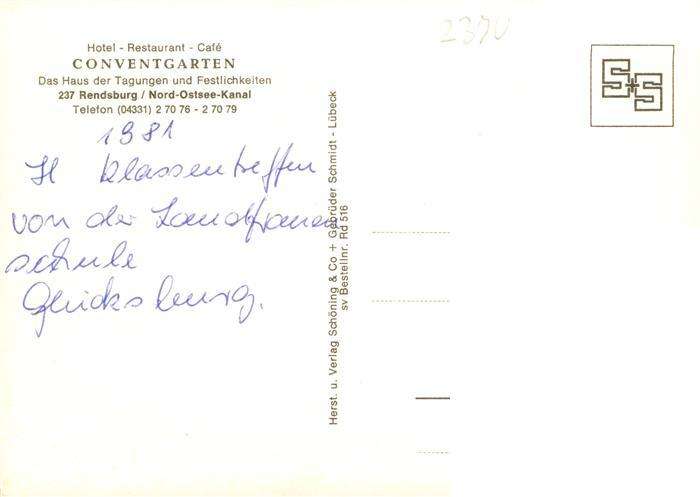 2370
Hotel - Restaurant - Café
CONVENTGARTEN
Das Haus der Tagungen und Festlichkeiten
237 Rendsburg / Nord-Ostsee-Kanal
Telefon (04331) 2 70 76 - 2 70 79
1981
II Klassentreffen
von der Landfrauen
schule
Glücksburg.
Herst. u. Verlag Schöning & Co + Gebrüder Schmidt - Lübeck
sv Bestellnr. Rd 516
S+S